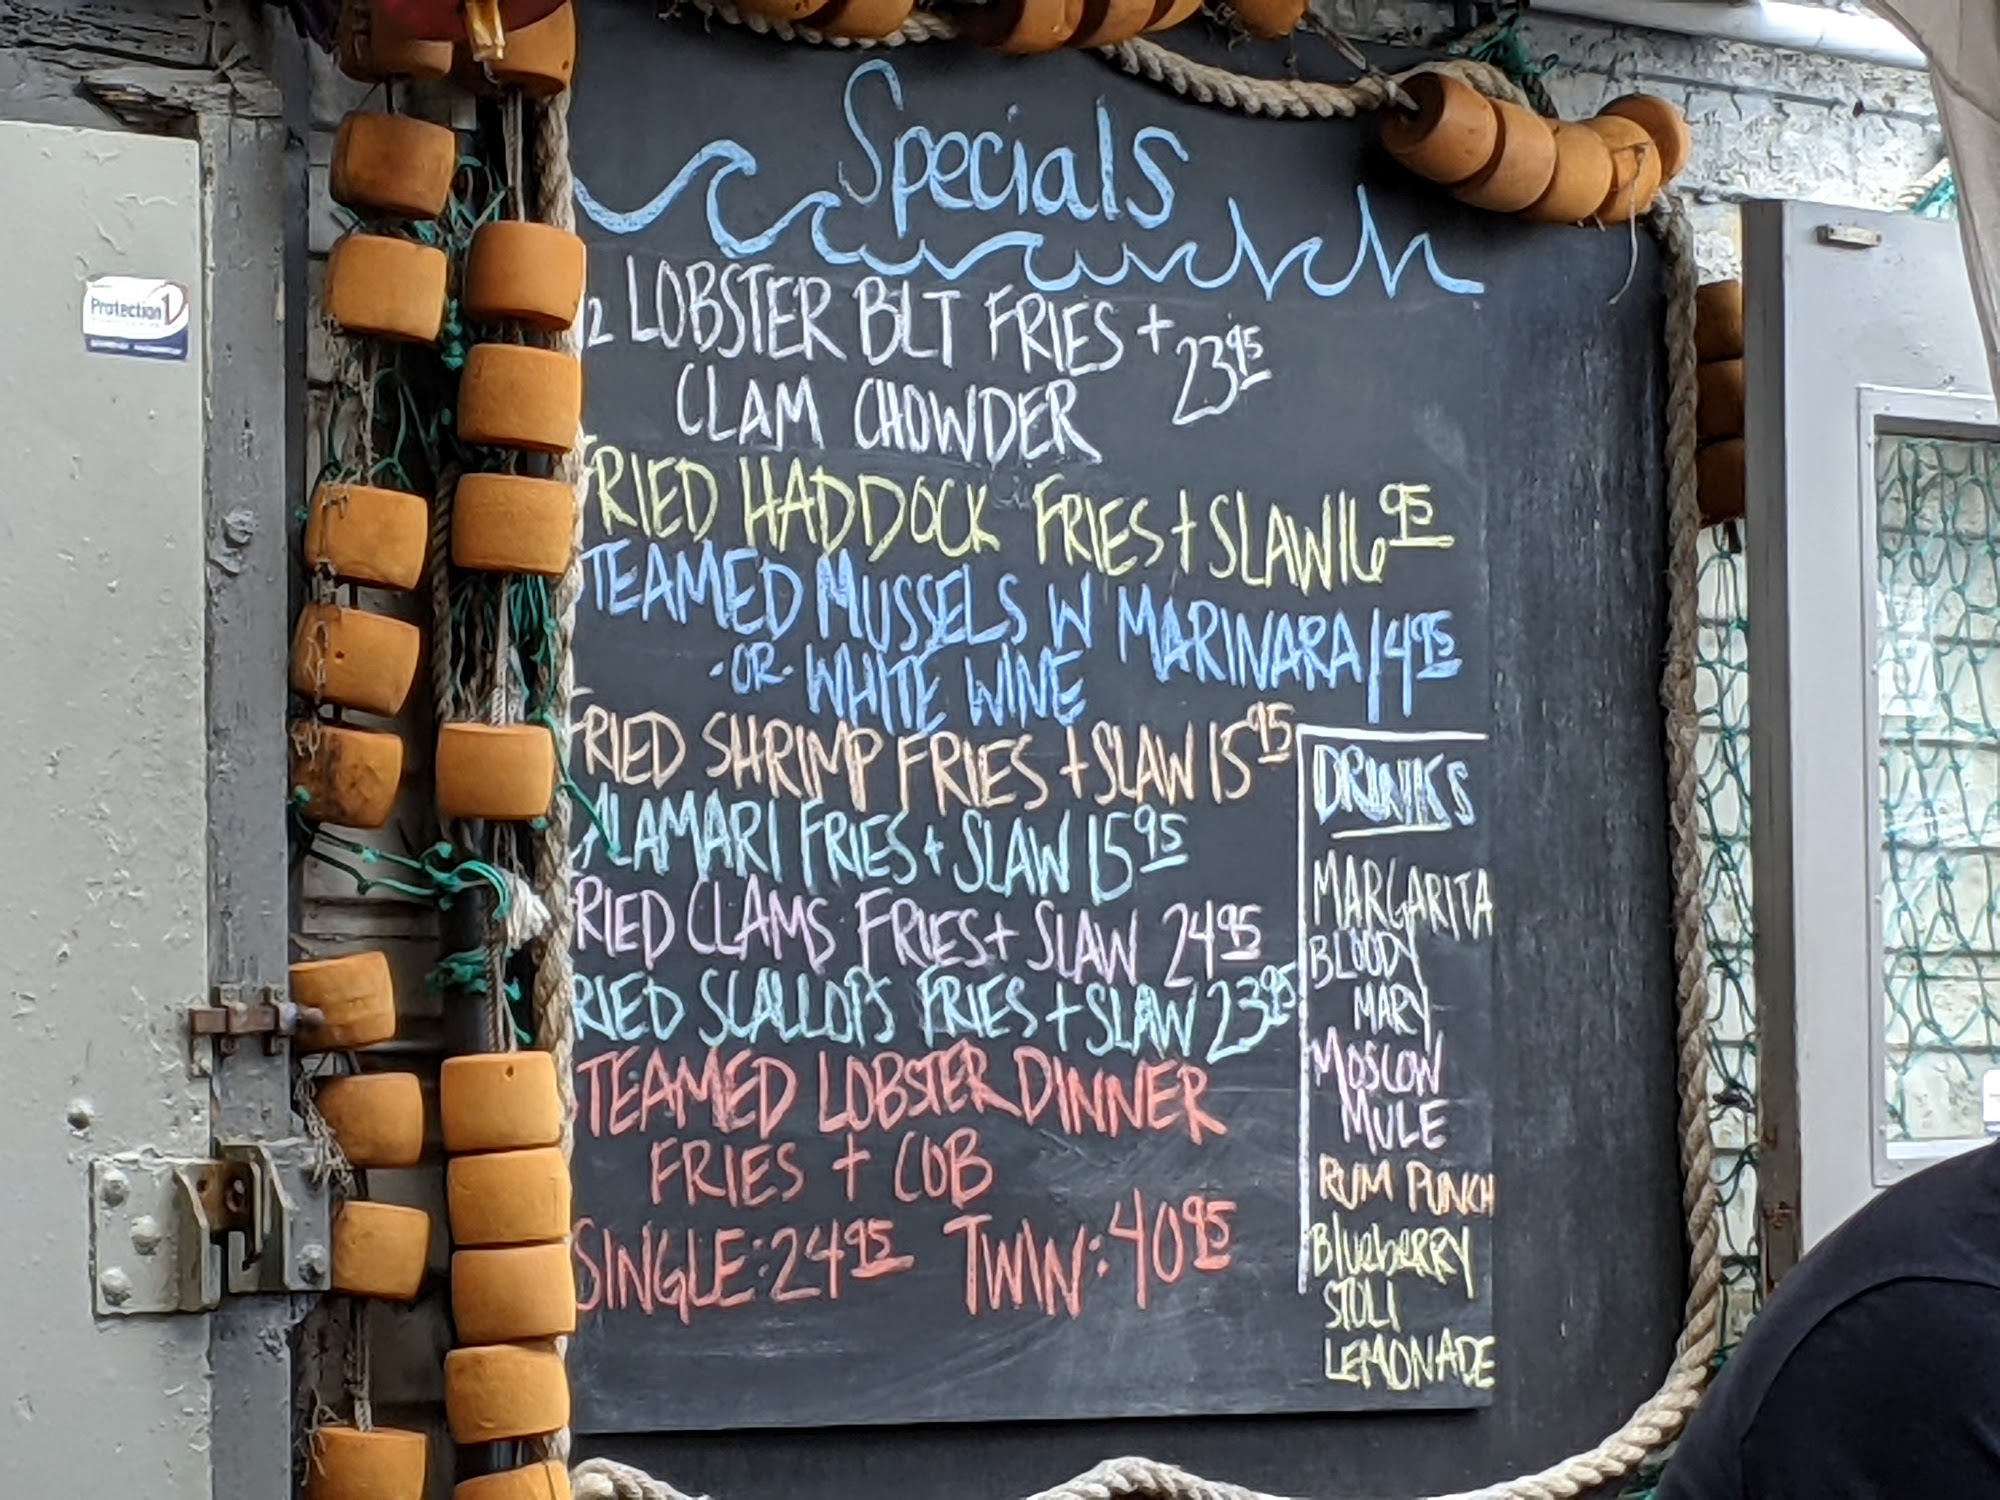 Protection 1
Specials
2 LOBSTER BLT FRIES + 23.95
CLAM CHOWDER
FRIED HADDOCK FRIES + SLAW 16 95
STEAMED MUSSELS W MARINARA 14 95
-OR- WHITE WINE
FRIED SHRIMP FRIES + SLAW 15 95
CALAMARI FRIES + SLAW 15 95
FRIED CLAMS FRIES + SLAW 24 95
FRIED SCALLOPS FRIES + SLAW 23 95
STEAMED LOBSTER DINNER
FRIES + COB
SINGLE: 24 95 TWIN: 40 95
DRINKS
MARGARITA
BLOODY
MARY
MOSCOW
MULE
RUM PUNCH
BlueberRY
STOLI
LEMONADE